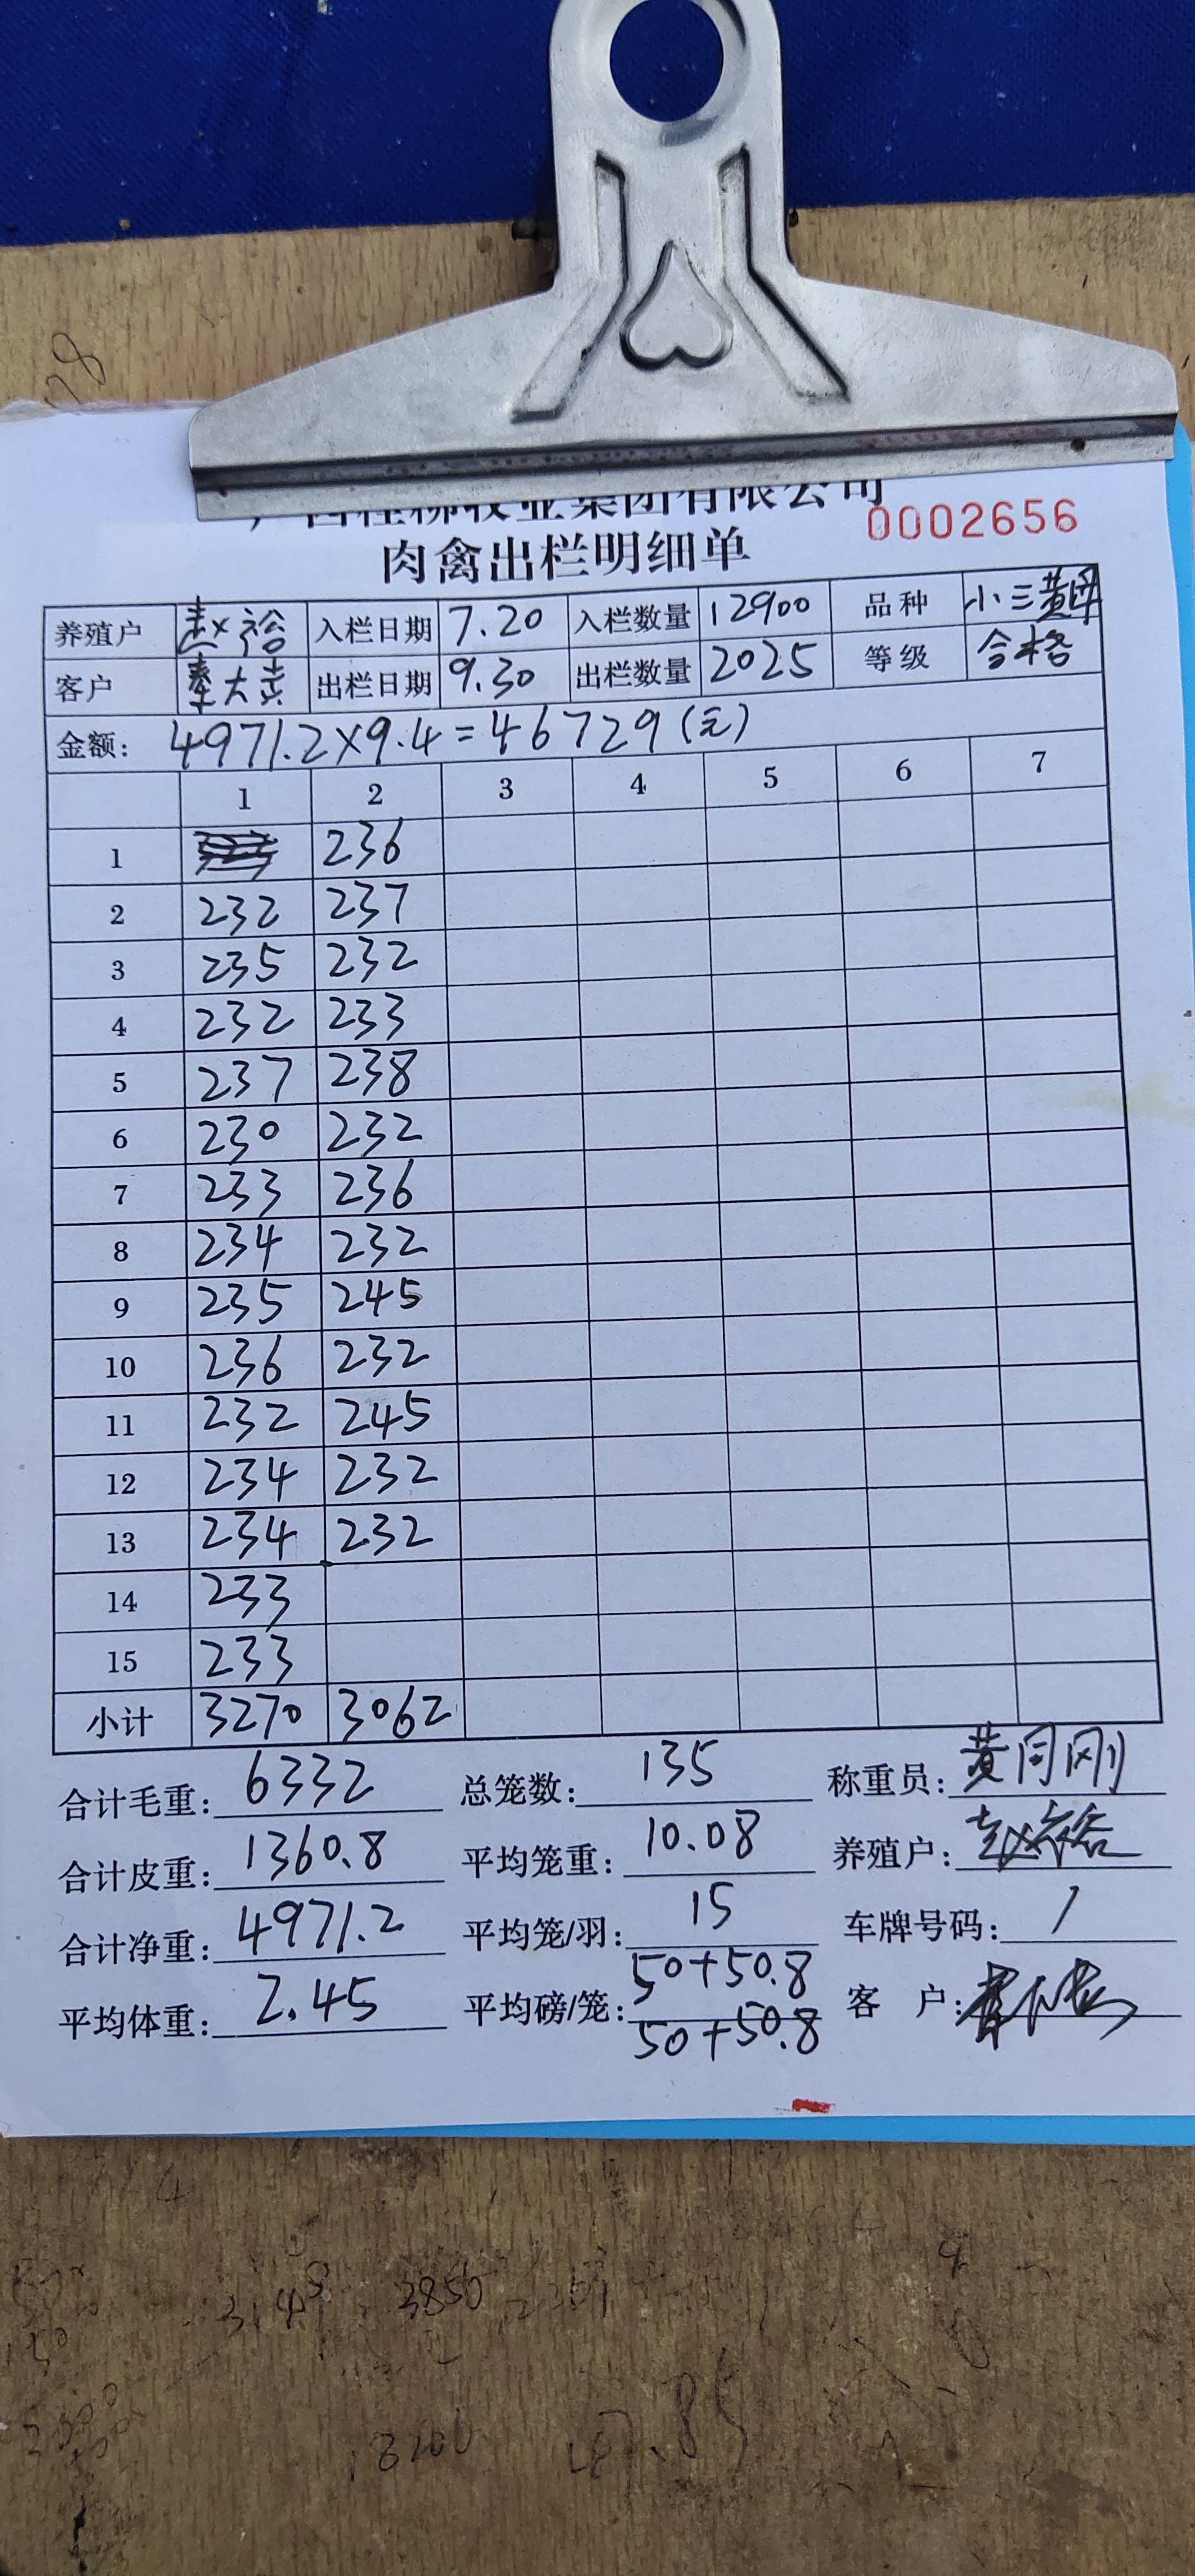 广西桂柳牧业集团有限公司
0002656
肉禽出栏明细单
养殖户 赵裕 入栏日期 7.20 入栏数量 12900 品种 小三黄母
客户 秦大贵 出栏日期 9.30 出栏数量 2025 等级 合格
金额: 4971.2×9.4=46729(元)
1 2 3 4 5 6 7
1 236
2 232 237
3 235 232
4 232 233
5 237 238
6 230 232
7 233 236
8 234 232
9 235 245
10 236 232
11 232 245
12 234 232
13 234 232
14 233
15 233
小计 3270 3062
合计毛重: 6332 总笼数: 135 称重员: 黄同刚
合计皮重: 1360.8 平均笼重: 10.08 养殖户: 赵裕
合计净重: 4971.2 平均笼/羽: 15 车牌号码: /
平均体重: 2.45 平均磅/笼: 50+50.8 客 户:
50+50.8
3850